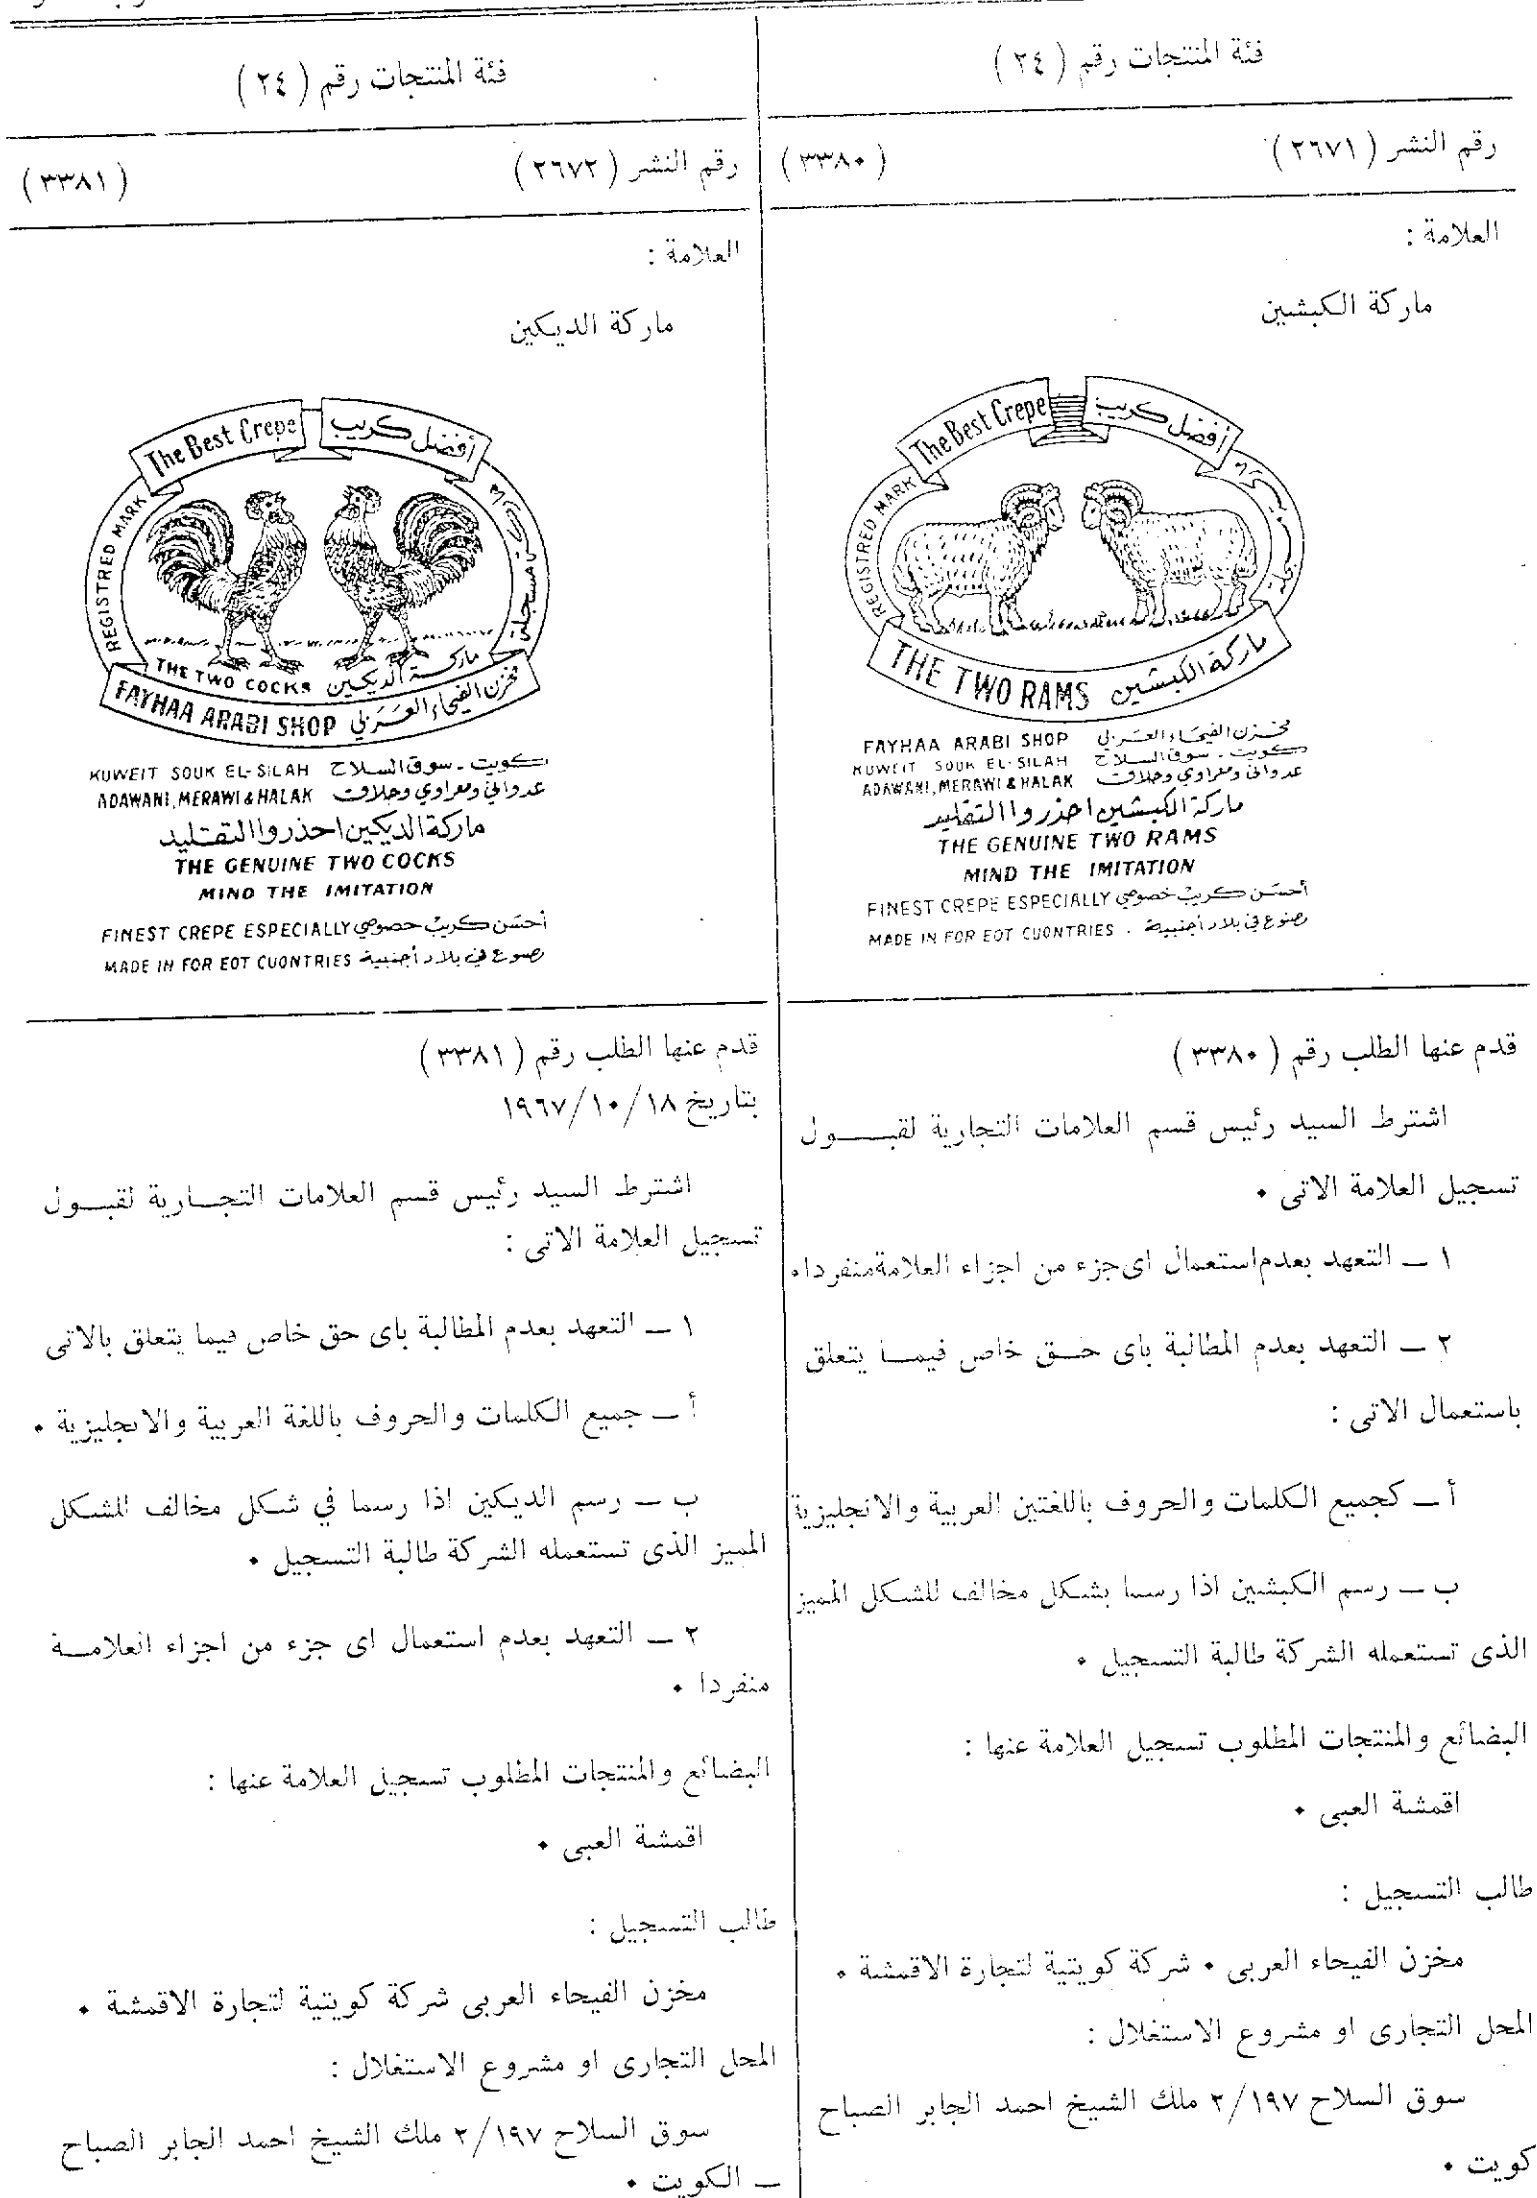 فئة المنتجات رقم ( ٢٤ )
رقم النشر ( ٢٦٧١ ) ( ٣٣٨٠ )
العلامة :
ماركة الكبشين
The Best Crepe أفضل كريب
REGISTRED MARK
THE TWO RAMS ماركة الكبشين
FAYHAA ARABI SHOP مخزن الفيحاء العربي
KUWEIT SOUK EL-SILAH كويت - سوق السلاح
ADAWANI, MERAWI & HALAK عدواني ومعراوي وحلاق
ماركة الكبشين احذروا التقليد
THE GENUINE TWO RAMS
MIND THE IMITATION
FINEST CREPE ESPECIALLY أحسن كريب خصوصي
MADE IN FOR EOT CUONTRIES . مصنوع في بلاد أجنبية
قدم عنها الطلب رقم ( ٣٣٨٠ )
اشترط السيد رئيس قسم العلامات التجارية لقبول
تسجيل العلامة الاتى .
١ ــ التعهد بعدم استعمال اى جزء من اجزاء العلامة منفردا .
٢ ــ التعهد بعدم المطالبة باى حق خاص فيما يتعلق
باستعمال الاتى :
أ ــ كجميع الكلمات والحروف باللغتين العربية والانجليزية
ب ــ رسم الكبشين اذا رسما بشكل مخالف للشكل المميز
الذى تستعمله الشركة طالبة التسجيل .
البضائع والمنتجات المطلوب تسجيل العلامة عنها :
اقمشة العبى .
طالب التسجيل :
مخزن الفيحاء العربى . شركة كويتية لتجارة الاقمشة .
المحل التجارى او مشروع الاستغلال :
سوق السلاح ٣/١٩٧ ملك الشيخ احمد الجابر الصباح
كويت .
فئة المنتجات رقم ( ٢٤ )
رقم النشر ( ٢٦٧٢ ) ( ٣٣٨١ )
العلامة :
ماركة الديكين
The Best Crepe أفضل كريب
REGISTRED MARK مسجلة
THE TWO COCKS ماركة الديكين
FAYHAA ARABI SHOP مخزن الفيحاء العربي
KUWEIT SOUK EL-SILAH كويت - سوق السلاح
ADAWANI, MERAWI & HALAK عدواني ومعراوي وحلاق
ماركة الديكين احذروا التقليد
THE GENUINE TWO COCKS
MIND THE IMITATION
FINEST CREPE ESPECIALLY أحسن كريب خصوصي
MADE IN FOR EOT CUONTRIES مصنوع في بلاد أجنبية
قدم عنها الطلب رقم ( ٣٣٨١ )
بتاريخ ١٩٦٧/١٠/١٨
اشترط السيد رئيس قسم العلامات التجارية لقبول
تسجيل العلامة الاتى :
١ ــ التعهد بعدم المطالبة باى حق خاص فيما يتعلق بالاتى
أ ــ جميع الكلمات والحروف باللغة العربية والانجليزية .
ب ــ رسم الديكين اذا رسما في شكل مخالف للشكل
المميز الذى تستعمله الشركة طالبة التسجيل .
٢ ــ التعهد بعدم استعمال اى جزء من اجزاء العلامة
منفردا .
البضائع والمنتجات المطلوب تسجيل العلامة عنها :
اقمشة العبى .
طالب التسجيل :
مخزن الفيحاء العربى شركة كويتية لتجارة الاقمشة .
المحل التجارى او مشروع الاستغلال :
سوق السلاح ٣/١٩٧ ملك الشيخ احمد الجابر الصباح
ــ الكويت .